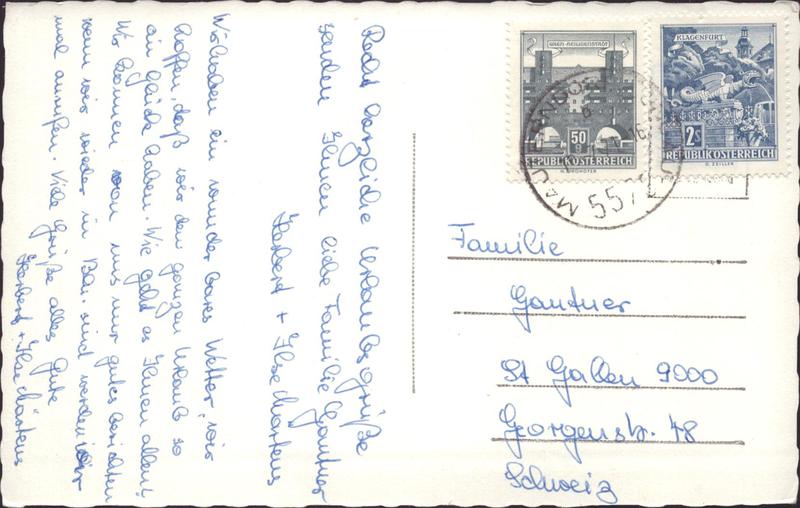 Recht herzliche Urlaubsgrüße
senden Ihnen liebe Familie Gantner
Herbert + Ilse Martens
Wir haben ein wunderbares Wetter, wir
hoffen, daß wir den ganzen Urlaub so
ein Glück haben. Wie geht es Ihnen allen?
Wir können von uns nur gutes berichten
wenn wir wieder in Bai. sind werden wir
mal anrufen. Viele Grüße alles Gute
Herbert + Ilse Martens
WIEN-HEILIGENSTADT
50 g
REPUBLIK ÖSTERREICH
KLAGENFURT
2s
REPUBLIK ÖSTERREICH
G. ZEILLER
557
Familie
Gantner
St Gallen 9000
Georgenstr. 48
Schweiz